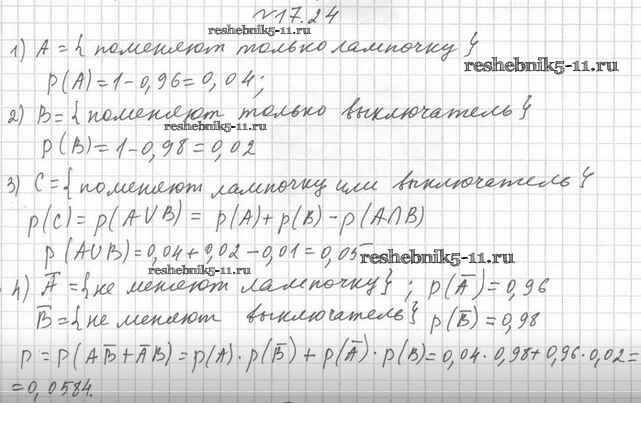 №17.24
reshebnik5-11.ru
1) A = { поменяют только лампочку }
reshebnik5-11.ru
p(A) = 1 - 0,96 = 0,04;
2) B = { поменяют только выключатель }
reshebnik5-11.ru
p(B) = 1 - 0,98 = 0,02
3) C = { поменяют лампочку или выключатель }
p(C) = p(A∪B) = p(A) + p(B) - p(A∩B)
p(A∪B) = 0,04 + 0,02 - 0,01 = 0,05
reshebnik5-11.ru
reshebnik5-11.ru
4) A̅ = { не меняют лампочку } ; p(A̅) = 0,96
B̅ = { не меняют выключатель } p(B̅) = 0,98
p = p(AB̅ + A̅B) = p(A) · p(B̅) + p(A̅) · p(B) = 0,04 · 0,98 + 0,96 · 0,02 =
= 0,0584.